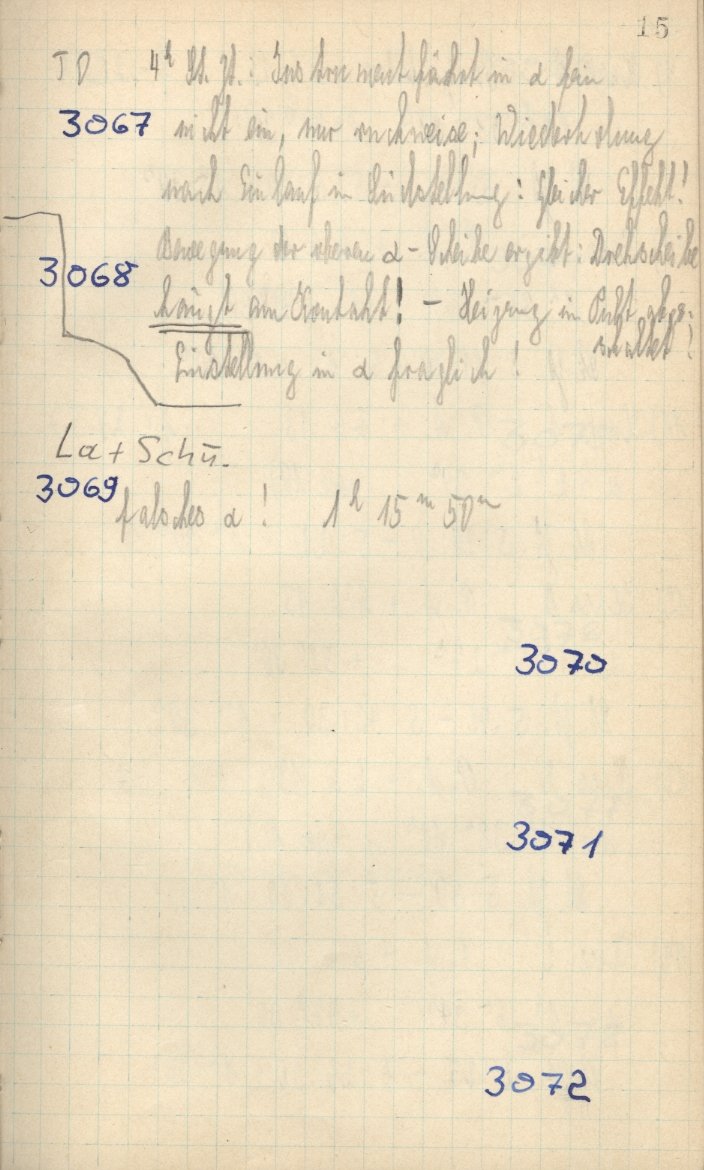 15
JD 4h St. Zt.: Instrument fährt in α fein
3067 nicht ein, nur ruckweise; Wiederholung
nach Einlauf in Südstellung: Gleicher Effekt!
Bewegung der oberen α-Scheibe ergibt: Drehscheibe
3068
hängt am Kontakt! – Heizung in Pult abge-
schaltet!
Einstellung in α fraglich!
La + Schü.
3069
falsches α! 1h 15m 50m
3070
3071
3072